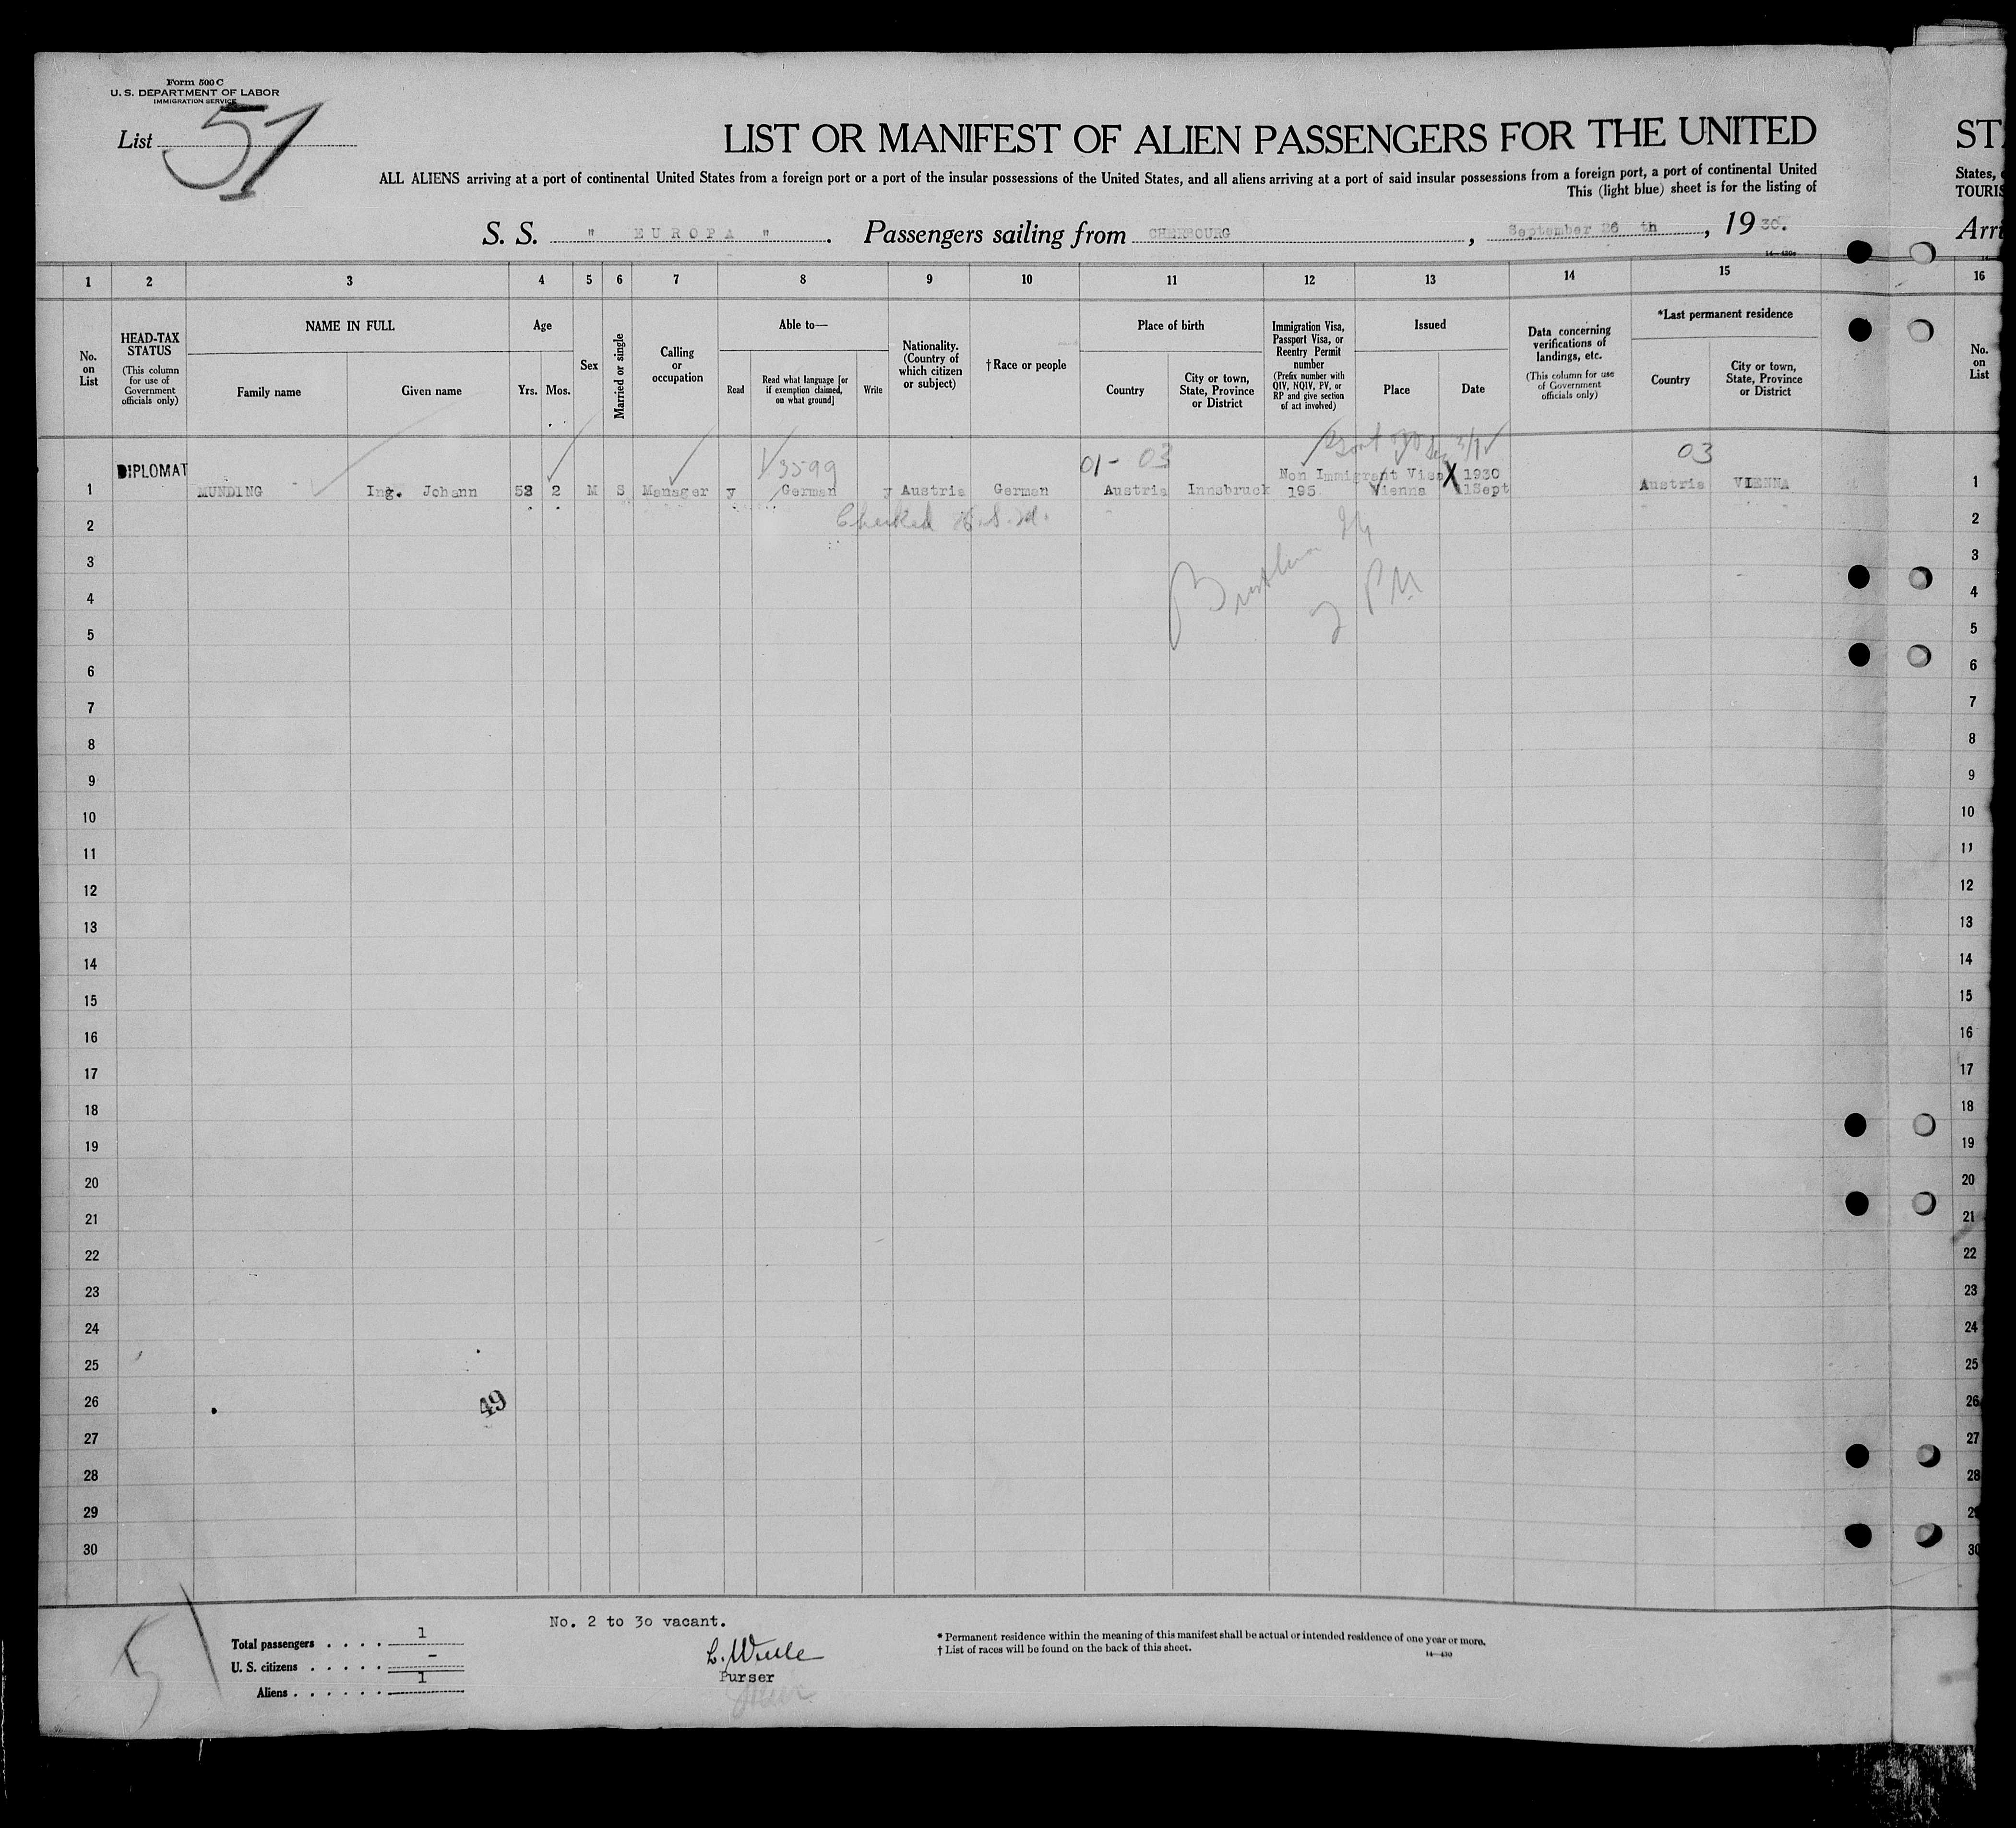 Form 500 C
U. S. DEPARTMENT OF LABOR
IMMIGRATION SERVICE
List 51
LIST OR MANIFEST OF ALIEN PASSENGERS FOR THE UNITED
ALL ALIENS arriving at a port of continental United States from a foreign port or a port of the insular possessions of the United States, and all aliens arriving at a port of said insular possessions from a foreign port, a port of continental United
This (light blue) sheet is for the listing of
S. S. " EUROPA " . Passengers sailing from CHERBOURG , September 26 th , 19 30.
ST
States,
TOURIS
Arri
1 2 3 4 5 6 7 8 9 10 11 12 13 14 15 16
No. on List
HEAD-TAX STATUS
(This column for use of Government officials only)
NAME IN FULL
Family name
Given name
Age
Yrs. Mos.
Sex
Married or single
Calling or occupation
Able to—
Read
Read what language [or if exemption claimed, on what ground]
Write
Nationality. (Country of which citizen or subject)
†Race or people
Place of birth
Country
City or town, State, Province or District
Immigration Visa, Passport Visa, or Reentry Permit number
(Prefix number with QIV, NQIV, PV, or RP and give section of act involved)
Issued
Place
Date
Data concerning verifications of landings, etc.
(This column for use of Government officials only)
*Last permanent residence
Country
City or town, State, Province or District
No. on List
3599 01- 03 03
DIPLOMAT Non Immigrant Visa X 1930
1 MUNDING Ing. Johann 52 2 M S Manager y German y Austria German Austria Innsbruck 195 Vienna 11Sept Austria VIENNA 1
2 Checked 2
3 3
4 4
5 5
6 6
7 7
8 8
9 9
10 10
11 11
12 12
13 13
14 14
15 15
16 16
17 17
18 18
19 19
20 20
21 21
22 22
23 23
24 24
25 25
26 49 26
27 27
28 28
29 29
30 30
No. 2 to 30 vacant.
Total passengers . . . . 1
U. S. citizens . . . . . -
Aliens . . . . . . 1
Purser
* Permanent residence within the meaning of this manifest shall be actual or intended residence of one year or more.
† List of races will be found on the back of this sheet.
14—430